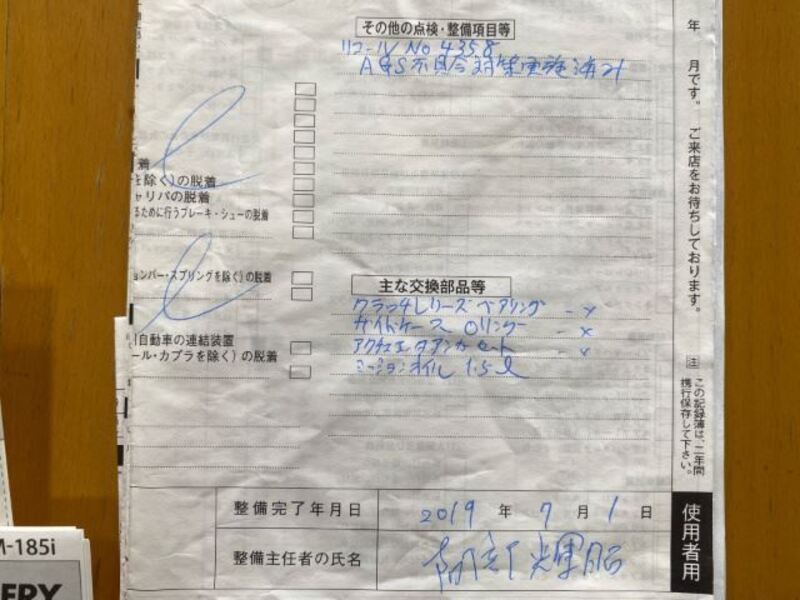 その他の点検・整備項目等
リコールNo 4358
AGS不具合対策実施済み
着
を除く)の脱着
ャリパの脱着
るために行うブレーキ・シューの脱着
ョンバー・スプリングを除く)の脱着
自動車の連結装置
ール・カプラを除く)の脱着
主な交換部品等
クラッチレリーズベアリング - x
サイドケース Oリング - x
アクチュエタアンカセート - x
ミッションオイル 1.5ℓ
整備完了年月日 2019 年 7 月 1 日
整備主任者の氏名
年 月です。 ご来店をお待ちしております。
注 この記録簿は、二年間
携行保存して下さい。
使用者用
M-185i
ERY